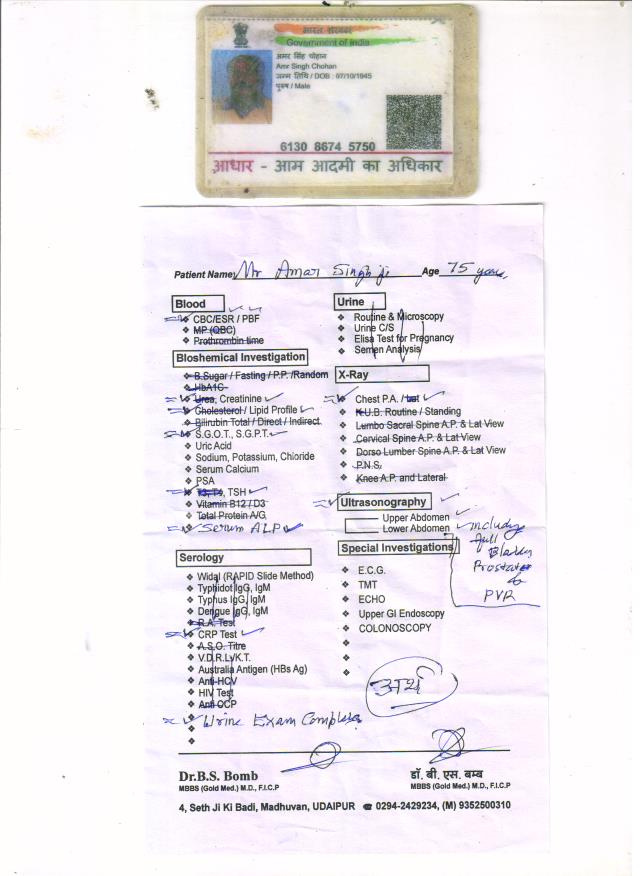 भारत सरकार
Government of India
अमर सिंह चोहान
Amr Singh Chohan
जन्म तिथि / DOB : 07/10/1945
पुरुष / Male
6130 8674 5750
आधार - आम आदमी का अधिकार
Patient Name Mr Amar Singh ji Age 75 years,
Blood
CBC/ESR / PBF
MP (QBC)
Prothrombin time
Bioshemical Investigation
B.Sugar / Fasting / P.P. /Random
HbA1C
Urea, Creatinine
Cholesterol / Lipid Profile
Bilirubin Total / Direct / Indirect
S.G.O.T., S.G.P.T.
Uric Acid
Sodium, Potassium, Chloride
Serum Calcium
PSA
T3, T4, TSH
Vitamin B12 / D3
Total Protein A/G
Serum ALP
Serology
Widal (RAPID Slide Method)
Typhidot IgG, IgM
Typhus IgG, IgM
Dengue IgG, IgM
R.A. Test
CRP Test
A.S.O. Titre
V.D.R.L/K.T.
Australia Antigen (HBs Ag)
Anti-HCV
HIV Test
Anti-CCP
Urine Exam Complete
Urine
Routine & Microscopy
Urine C/S
Elisa Test for Pregnancy
Semen Analysis
X-Ray
Chest P.A. / Lat
K.U.B. Routine / Standing
Lumbo Sacral Spine A.P. & Lat View
Cervical Spine A.P. & Lat View
Dorso Lumber Spine A.P. & Lat View
P.N.S.
Knee A.P. and Lateral
Ultrasonography
Upper Abdomen
Lower Abdomen
include
full
Bladder
Prostate
&
PVR
Special Investigations
E.C.G.
TMT
ECHO
Upper GI Endoscopy
COLONOSCOPY
Dr.B.S. Bomb
MBBS (Gold Med.) M.D., F.I.C.P
डॉ. बी. एस. बम्ब
MBBS (Gold Med.) M.D., F.I.C.P
4, Seth Ji Ki Badi, Madhuvan, UDAIPUR ☎ 0294-2429234, (M) 9352500310